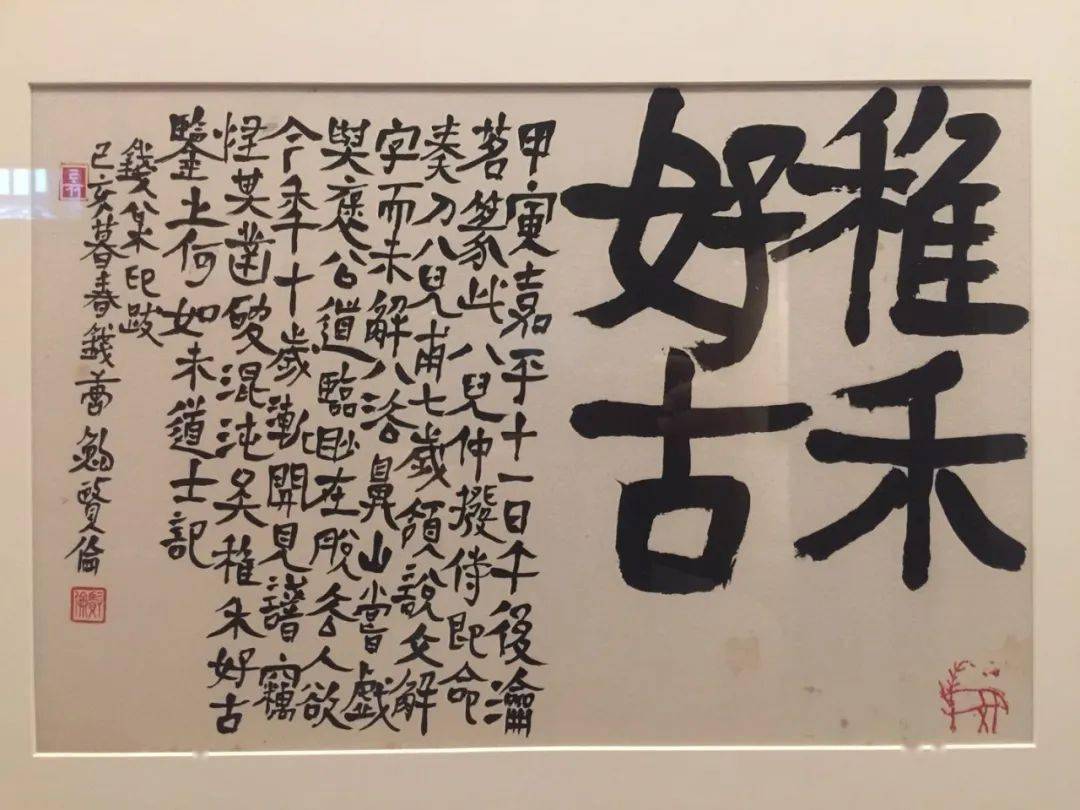 稚禾
好古
甲寅嘉平十一日午後瀹
茗篆此八兒伸撥侍即命
奏刀八兒甫七歲領說文解
字而未解八法鼻山嘗戲
與褒公道臨在脫人欲
今年十歲漸開見譜竊
怪其鑿破混沌矣稚禾好古
鑒之何如未道士記
錢叔印跋
己亥暮春錢鮑賢倫